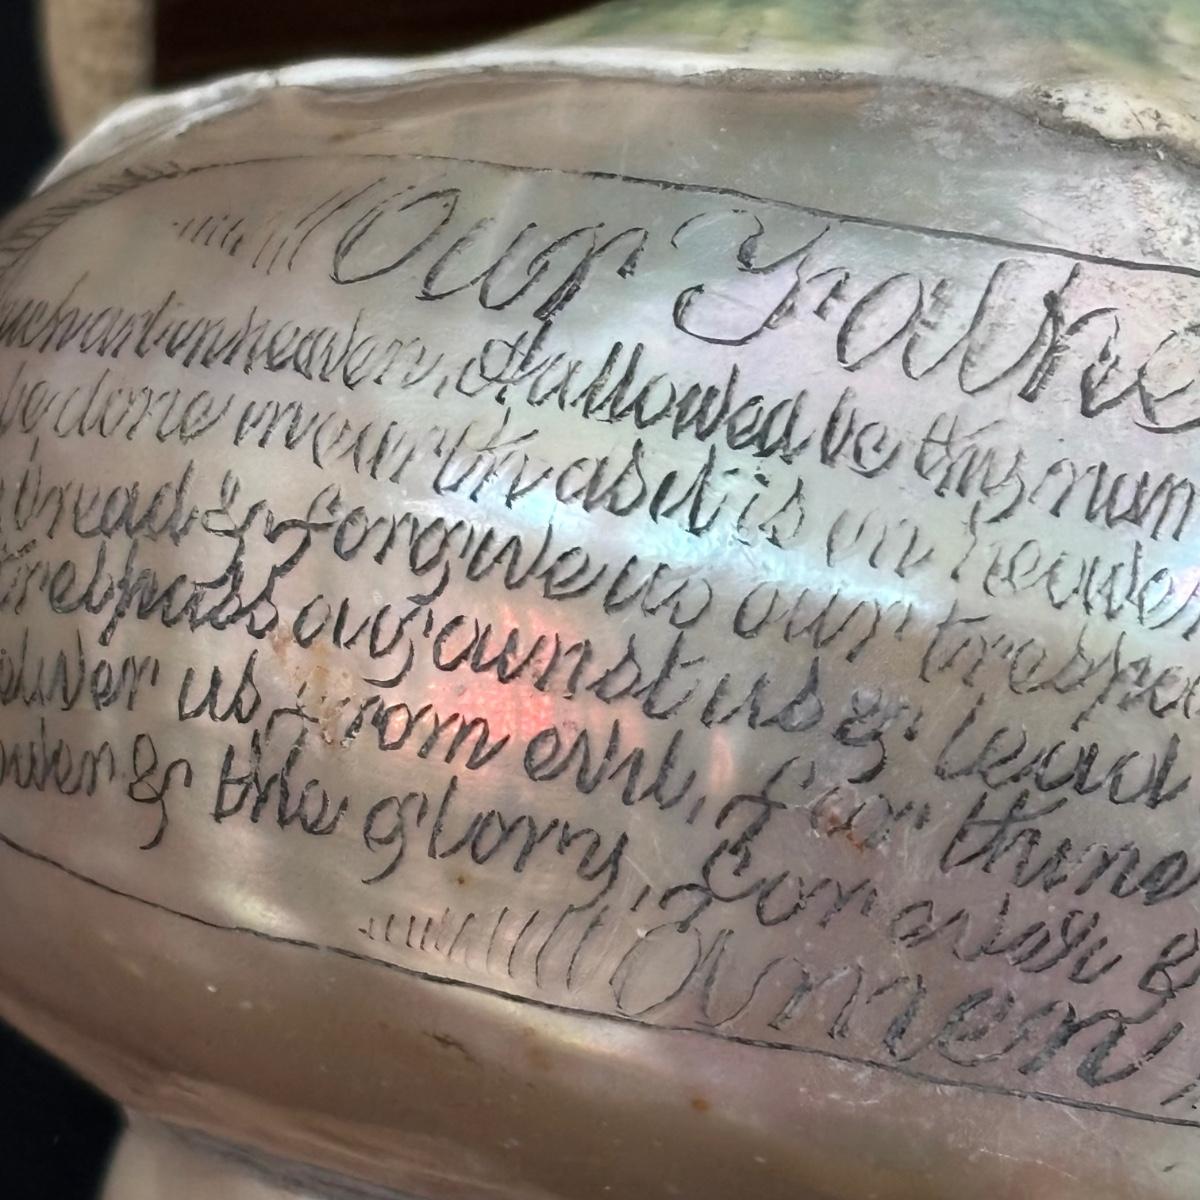 Our Fathe
uch art in heaven, Hallowed be thy nam
be done in earth as it is in heaven
bread & forgive us our trespa
trespass against us & lead
eliver us from evil, for thine
ower & the glory, for ever &
Amen